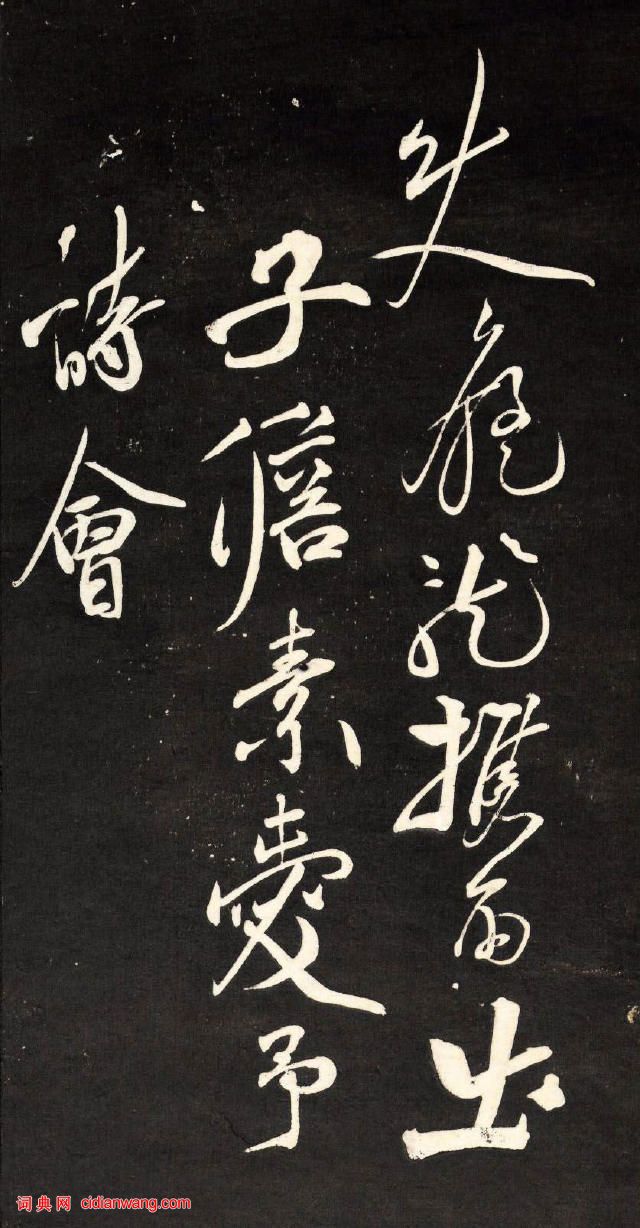 失攜而出
子瞻素愛予
詩會
词典网 cidianwang.com